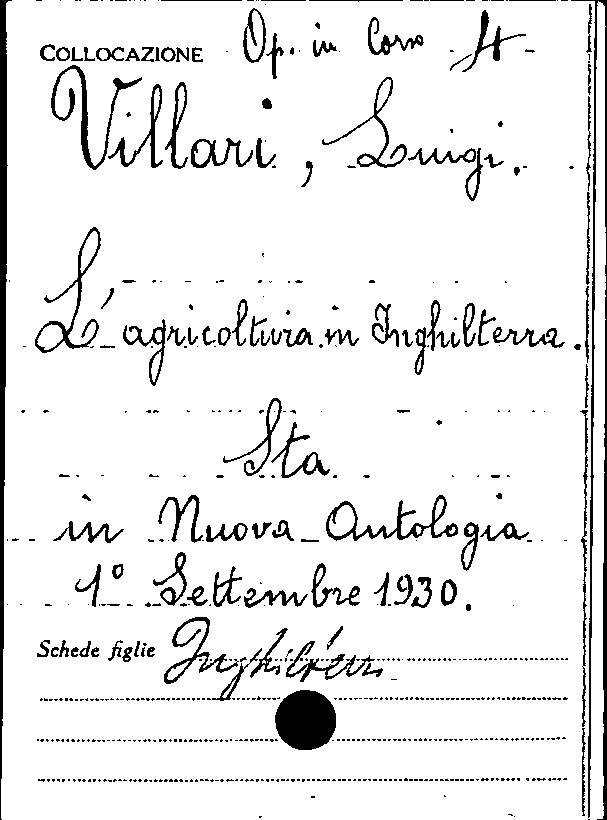 COLLOCAZIONE Op. in Corso 4
Villari, Luigi.
L'agricoltura in Inghilterra.
Sta
in Nuova Antologia
1° Settembre 1930.
Schede figlie